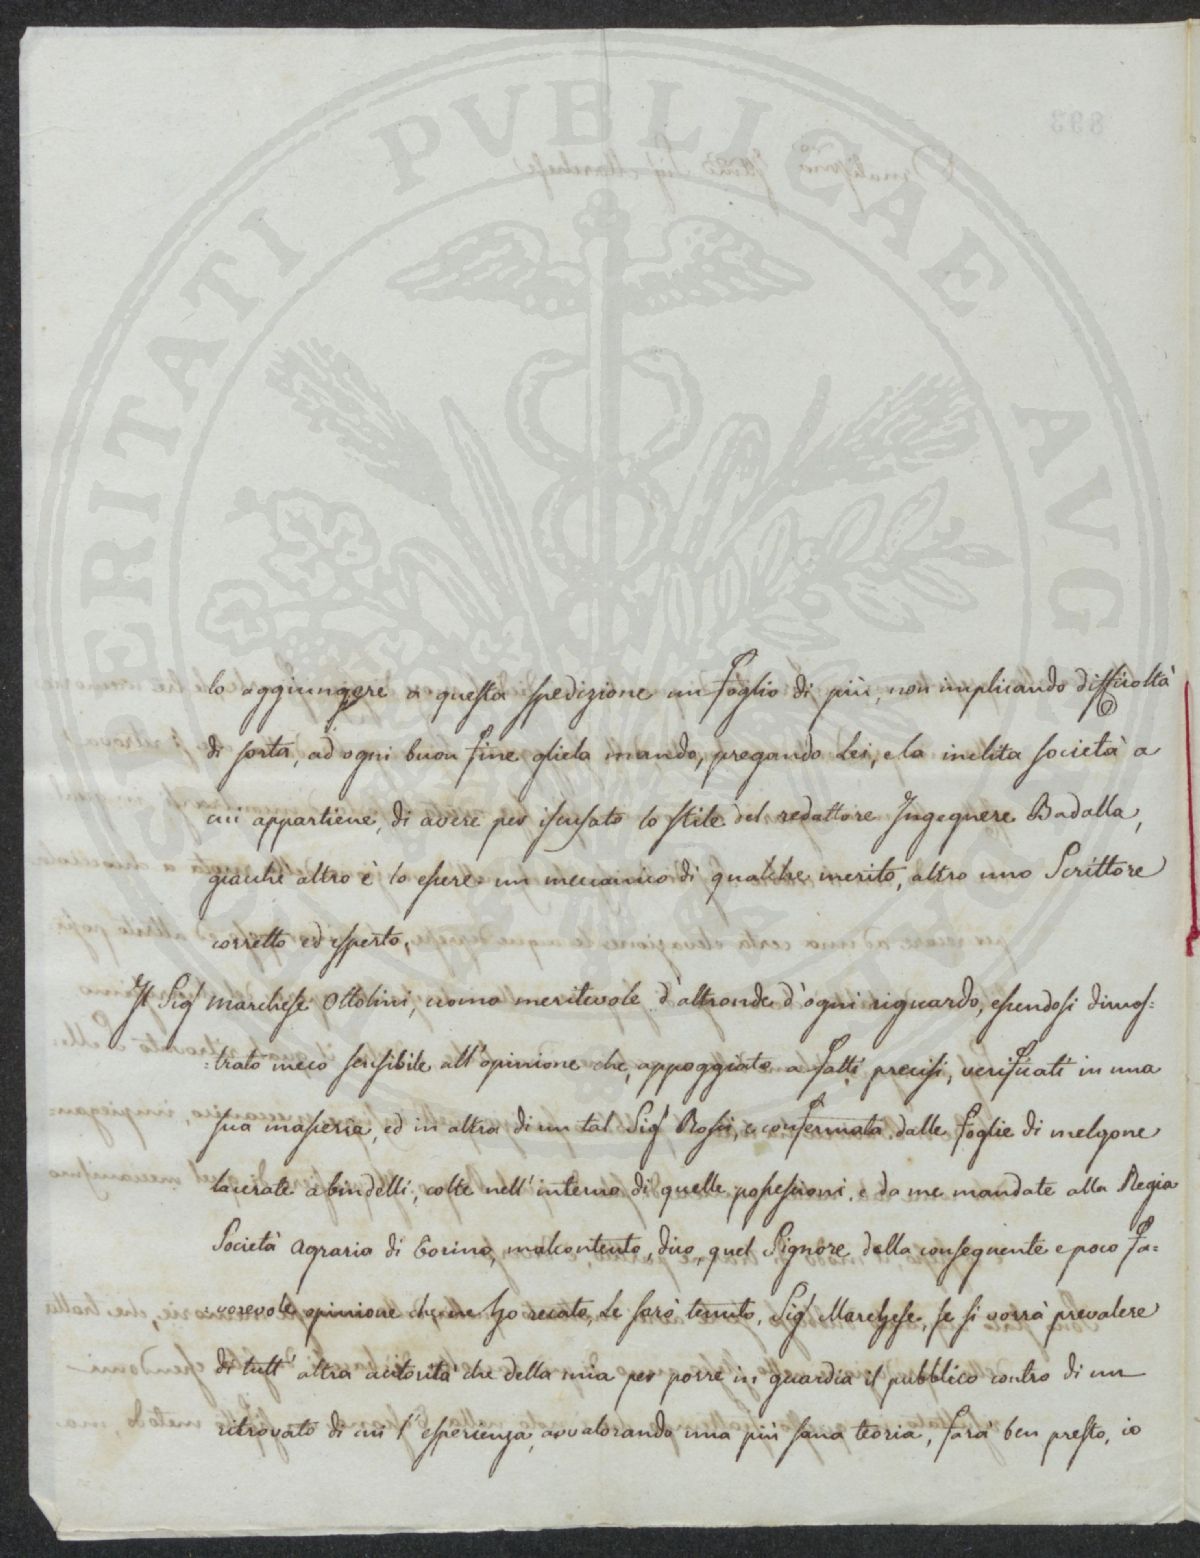 VERITATI PVBLICAE AVG
lo aggiungere a questa spedizione un foglio di più, non implicando difficoltà
di sorta, ad ogni buon fine gliela mando, pregando Lei, e la inclita società a
cui appartiene, di avere per iscusato lo stile del redattore Ingegnere Badalla,
giacchè altro è lo essere un meccanico di qualche merito, altro uno Scrittore
corretto ed esperto.
Il Sig.r Marchese Ottolini, uomo meritevole d'altronde d'ogni riguardo, essendosi dimos=
=trato meco sensibile all'opinione che, appoggiato a fatti precisi, verificati in una
sua masseria, ed in altra di un tal Sig.r Rossi, e confermata dalle foglie di melgone
lacerate a bindelli, colte nell'interno di quelle possessioni, e da me mandate alla Regia
Società Agraria di Torino, malcontento, dico, quel Signore della conseguente e poco fa=
=vorevole opinione che ne ho recato, Le sarò tenuto, Sig.r Marchese, se si vorrà prevalere
di tutt'altra autorità che della mia per porre in guardia il pubblico contro di un
ritrovato di cui l'esperienza, avvalorando una più sana teoria, farà ben presto, io